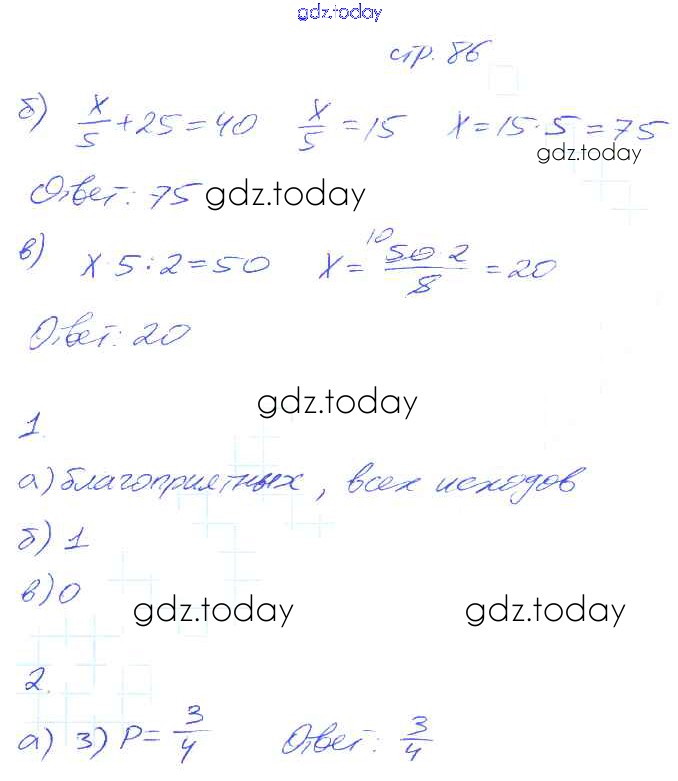 gdz.today
стр. 86
б) x/5 + 25 = 40 x/5 = 15 x = 15 · 5 = 75
gdz.today
Ответ: 75 gdz.today
в) x · 5 : 2 = 50 x = 10 50 · 2 / 5 = 20
Ответ: 20
gdz.today
1.
а) благоприятных, всех исходов
б) 1
в) 0
gdz.today gdz.today
2.
а) 3) P = 3/4 Ответ: 3/4